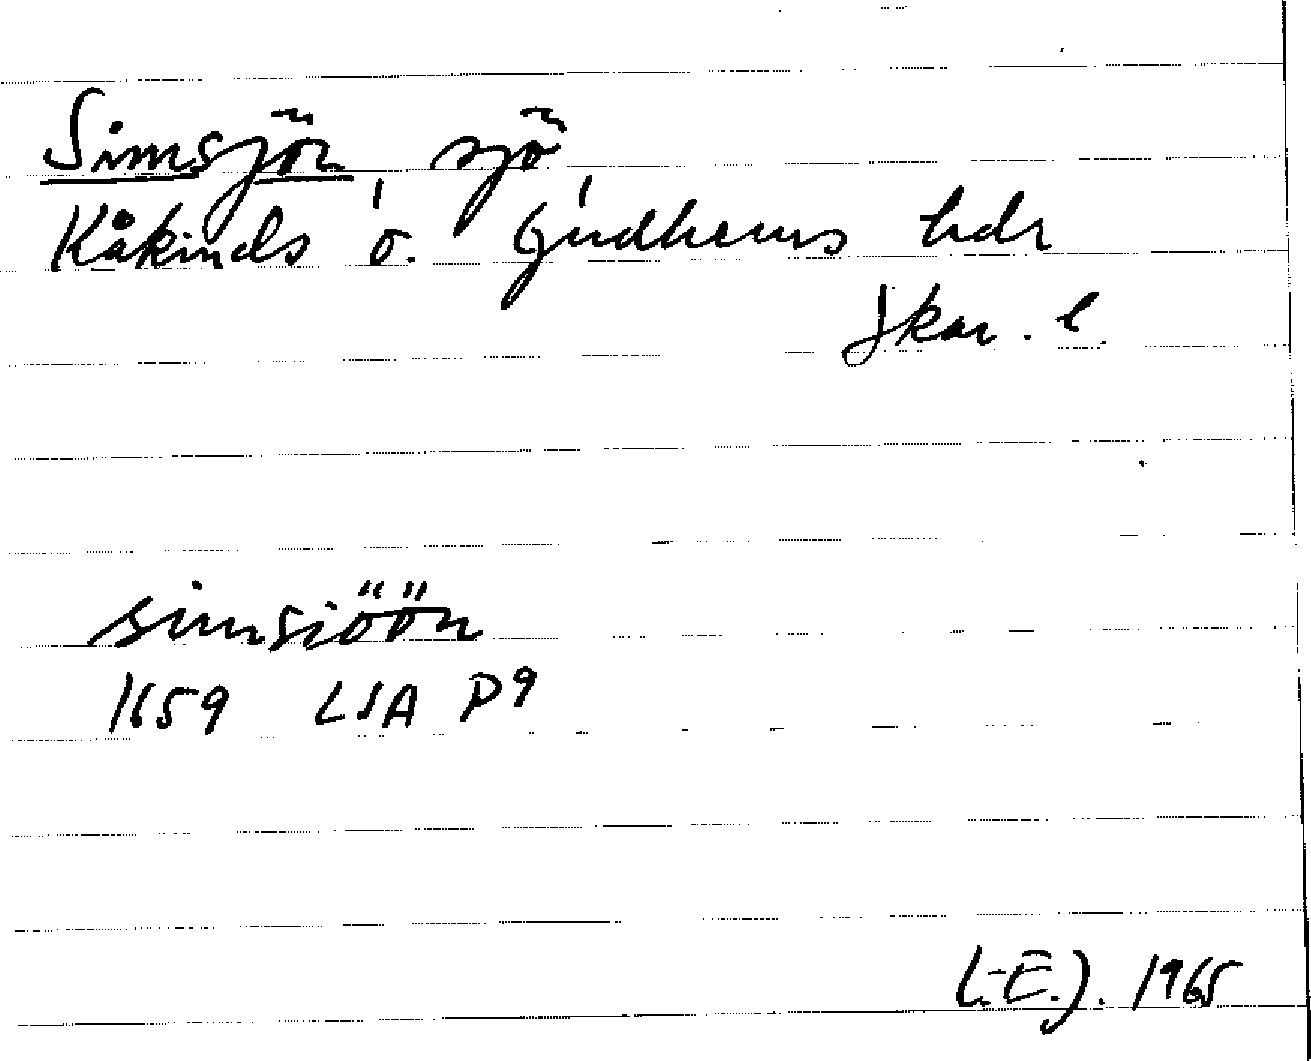 Simsjön sjö
Kåkinds o. Gudhems hdr
Skar. l.
simsiöön
1659 LSA P9
L-E.J. 1965